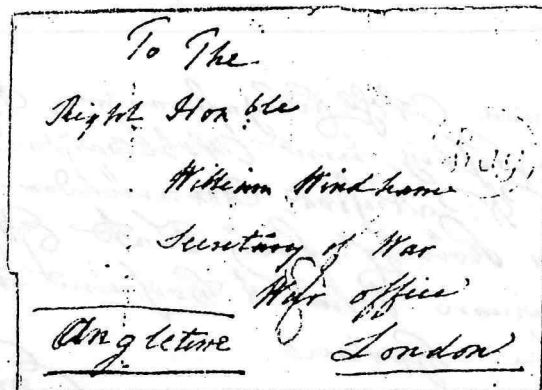 To The
Right Honble
William Windham
Secretary of War
War office
Angleterre
London